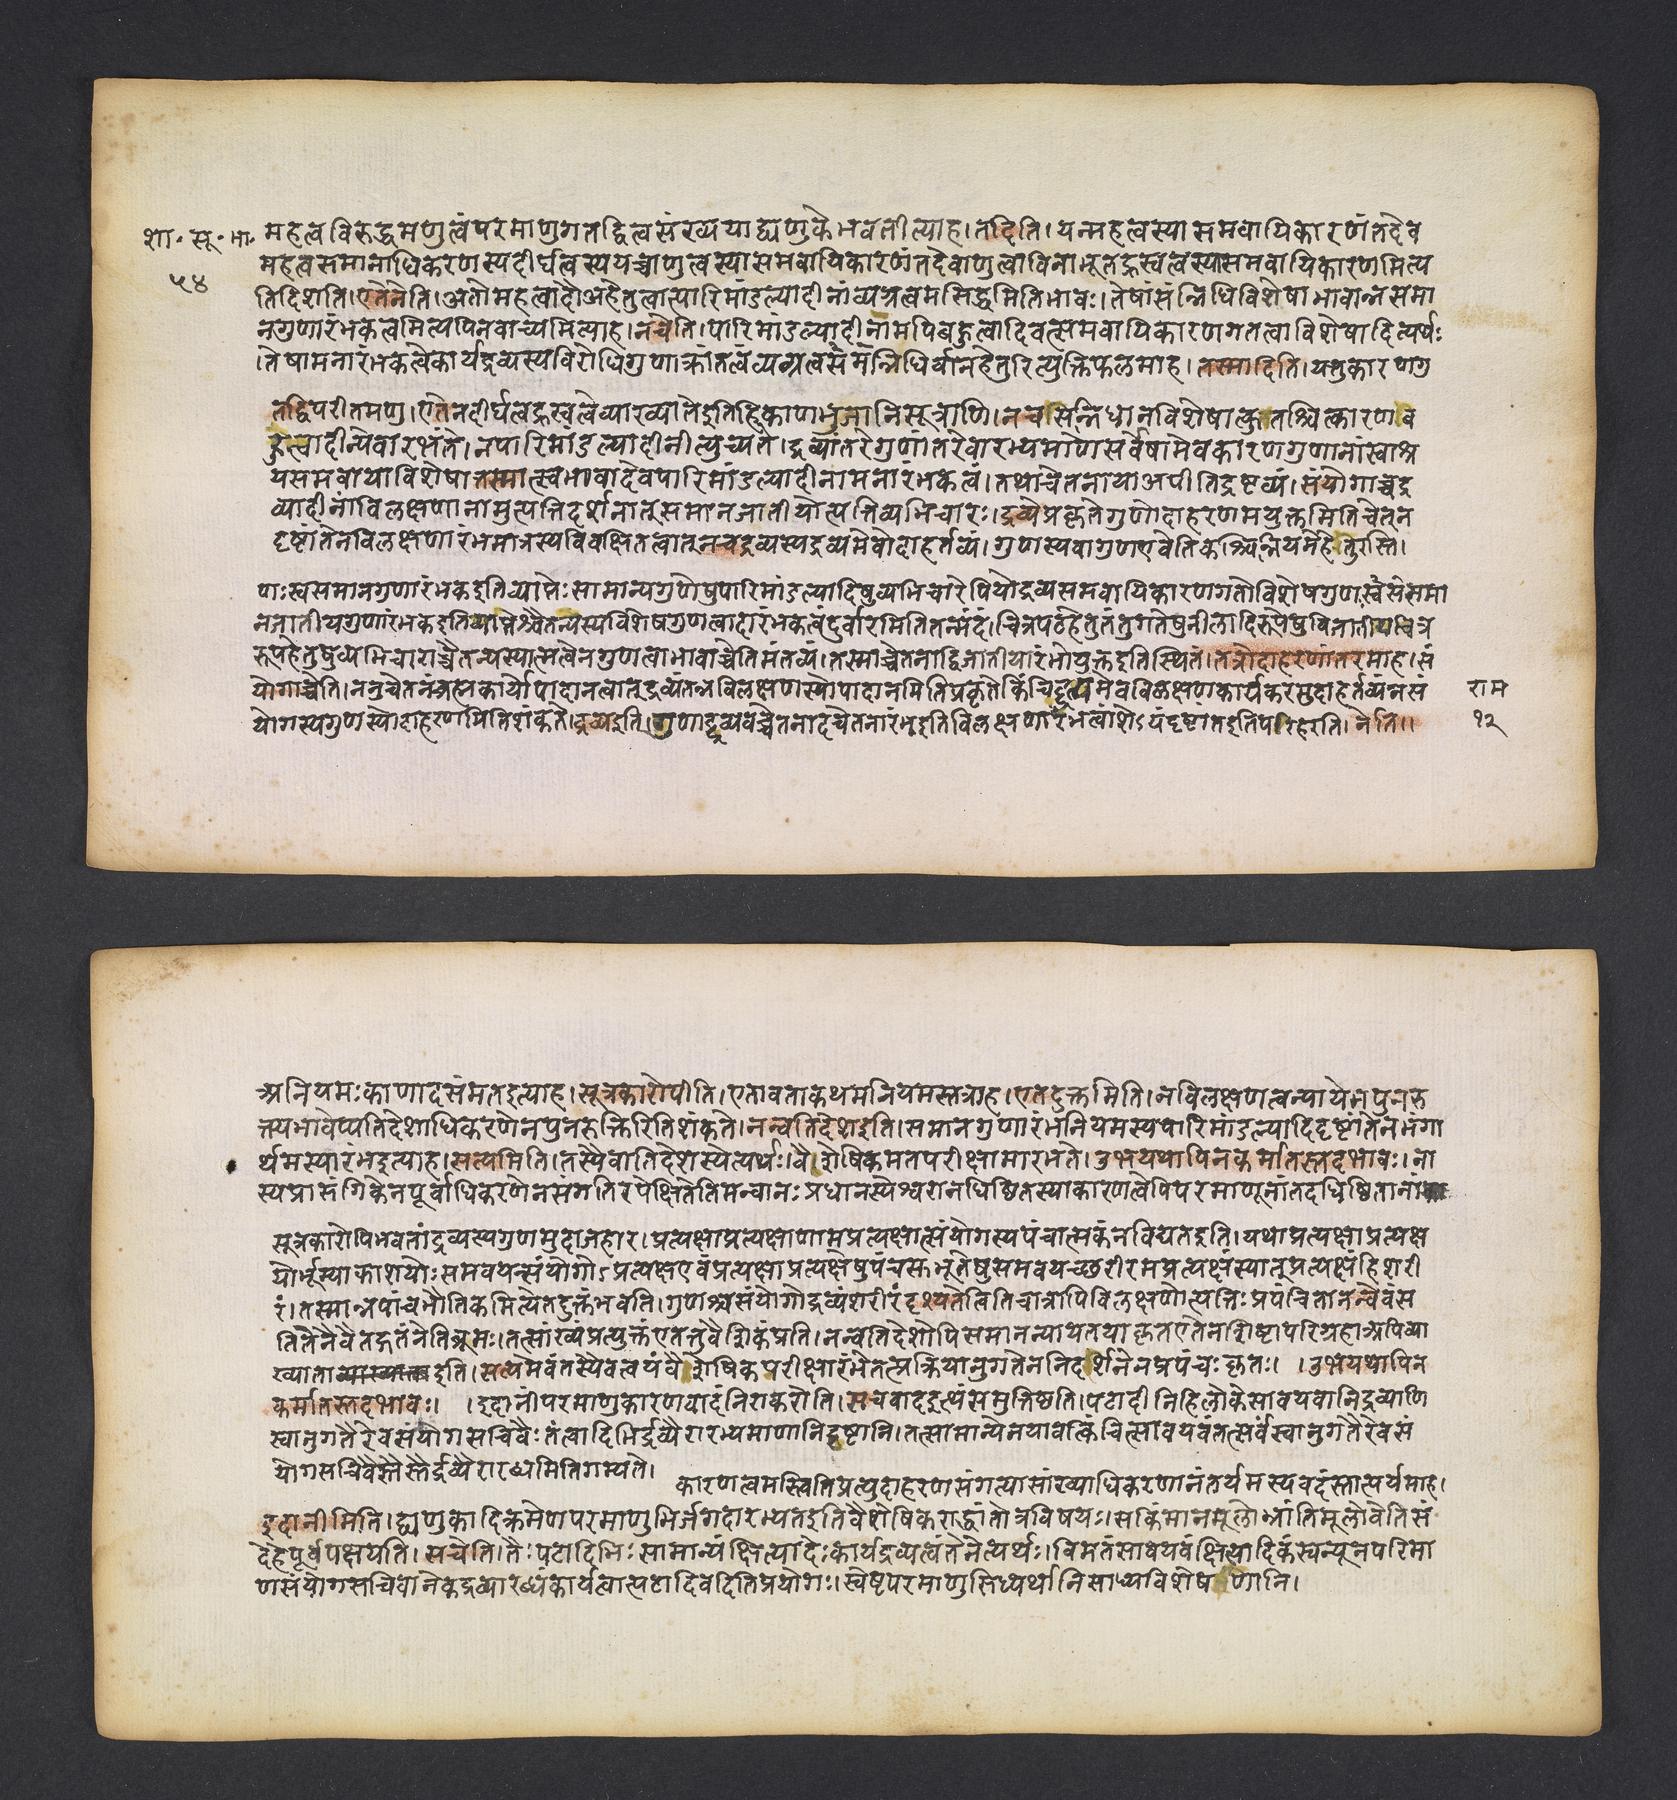 शा. सू. भा. महत्वविरुद्धमणुत्वंपरमाणुगतद्वित्वसंख्ययाद्व्यणुकेभवतीत्याह।तदिति।यन्महत्वस्यासमवायिकारणंतदेव
५४ महत्वसमानाधिकरणस्यदीर्घत्वस्ययच्चाणुत्वस्यासमवायिकारणंतदेवाणुत्वाविनाभूतह्रस्वत्वस्यासमवायिकारणमित्य
तिदिशति।एतेनेति।अतोमहत्वादौअहेतुत्वात्पारिमांडल्यादीनांव्यग्रत्वमसिद्धमितिभावः।तेषांसंन्निधिविशेषाभावान्नसमा
नगुणारंभकत्वमित्यपिनवाच्यमित्याह।नचेति।पारिमांडल्यादीनामपिबहुत्वादिवत्समवायिकारणगतत्वाविशेषादित्यर्थः
तेषामनारंभकत्वेकार्यद्रव्यस्यविरोधिगुणाक्रांतत्वंव्यग्रत्वसंमंन्निधिर्वानहेतुरित्युक्तिफलमाह।तस्मादिति।यत्तुकारणगु
तद्विपरीतमणु।एतेनदीर्घत्वह्रस्वत्वेव्याख्यातेइतिहिकाणभुजानिसूत्राणि।नचसन्निधानविशेषात्कुतश्चित्कारणब
हुत्वादीन्येवारभंते।नपारिमांडल्यादीनीत्युच्यते।द्रव्यांतरेगुणांतरेवारभ्यमाणेसर्वेषामेवकारणगुणानांस्वाश्र
यसमवायाविशेषातस्मात्स्वभावादेवपारिमांडल्यादीनामनारंभकत्वं।तथाचेतनायाअपीतिद्रष्टव्यं।संयोगाच्चद्र
व्यादीनांविलक्षणानामुत्पत्तिदर्शनात्तुसमानजातीयोत्पत्तिव्यभिचारः।द्रव्येप्रकृतेगुणोदाहरणमयुक्तमितिचेत्न
दृष्टांतेनविलक्षणारंभमात्रस्यविवक्षितत्वात्नचद्रव्यस्यद्रव्यमेवोदाहर्तव्यं।गुणस्यवागुणएवेतिकश्चिन्नियमेहेतुरस्ति।
णाःस्वसमानगुणारंभकइतिव्याप्तेःसामान्यगुणेषुपारिमांडल्यादिषुव्यभिचारेपियोद्रव्यसमवायिकारणगतोविशेषगुणःस्वंससमा
नजातीयगुणारंभकइतिव्याप्तेश्चैतन्यस्यविशेषगुणत्वादारंभकत्वंदुर्वारमितितन्मंदं।चित्रपटहेतुतंतुगतेषुनीलादिरूपेषुविजातीयचित्र
रूपहेतुषुव्यभिचाराच्चैतन्यस्यात्मत्वेनगुणत्वाभावाच्चेतिमंतव्यं।तस्माच्चेतनाद्विजातीयारंभोयुक्तइतिस्थितं।तत्रोदाहरणांतरमाह।सं
योगाच्चेति।ननुचेतनंब्रह्मकार्योपादानत्वात्द्रव्यंतन्नविलक्षणस्योपादानमितिप्रकृतेकिंचिद्द्रव्यमेवविलक्षणकार्यकरमुदाहर्तव्यंनसं राम
योगस्यगुणस्योदाहरणमितिशंकते।द्रव्यइति।गुणाद्द्रव्यवच्चेतनादचेतनारंभइतिविलक्षणारंभत्वांशेऽयंदृष्टांतइतिपरिहरति।नेति।। १२
अनियमःकाणादसंमतइत्याह।सूत्रकारोपीति।एतावताकथमनियमस्तत्राह।एतदुक्तमिति।नविलक्षणत्वन्यायेनपुनरु
क्त्यभावेप्यतिदेशाधिकरणेनपुनरुक्तिरितिशंकते।नन्वतिदेशइति।समानगुणारंभनियमस्यपारिमांडल्यादिदृष्टांतेनभंगा
र्थमस्यारंभइत्याह।सत्यमिति।तस्यैवातिदेशस्येत्यर्थः।वैशेषिकमतपरीक्षामारभते।उभयथापिनकर्मातस्तदभावः।ना
स्यप्रासंगिकेनपूर्वाधिकरणेनसंगतिरपेक्षितेतिमन्वानःप्रधानस्येश्वरानधिष्ठितस्याकारणत्वेपिपरमाणूनांतदधिष्ठितानां
सूत्रकारोपिभवतांद्रव्यस्यगुणमुदाजहार।प्रत्यक्षाप्रत्यक्षाणामप्रत्यक्षात्संयोगस्यपंचात्मकंनविद्यतइति।यथाप्रत्यक्षाप्रत्यक्ष
योर्भूम्याकाशयोःसमवयन्संयोगोऽप्रत्यक्षएवंप्रत्यक्षाप्रत्यक्षेषुपंचसुभूतेषुसमवयच्छरीरमप्रत्यक्षंस्यात्प्रत्यक्षंहिशरी
रं।तस्मान्नपांचभौतिकमित्येतदुक्तंभवति।गुणश्चसंयोगोद्रव्यंशरीरंदृश्यतेत्वितिचात्रापिविलक्षणोत्पत्तिःप्रपंचितानन्वेवंस
तितेनैवैतद्गतंनेतिब्रूमः।तत्सांख्यंप्रत्युक्तंएतत्तुवैशेषिकंप्रति।नन्वतिदेशोपिसमानन्यायतयाकृतएतेनशिष्टापरिग्रहाअपिव्या
ख्याताइति।सत्यमेवंतस्यैवत्वयंवैशेषिकपरीक्षारंभेतत्प्रक्रियानुगतेननिदर्शनेनप्रपंचःकृतः। ।उभयथापिन
कर्मातस्तदभावः। ।इदानींपरमाणुकारणवादंनिराकरोति।सचवादइत्थंसमुत्तिष्ठति।पटादीनिहिलोकेसावयवानिद्रव्याणि
स्वानुगतैरेवसंयोगसचिवैःतंत्वादिभिर्द्रव्यैरारभ्यमाणानिदृष्टानि।तत्सामान्येनयावत्किंचित्सावयवंतत्सर्वंस्वानुगतैरेवसं
योगसचिवैस्तैस्तैर्द्रव्यैरारब्धमितिगम्यते।
कारणत्वमस्त्वितिप्रत्युदाहरणसंगत्यासांख्याधिकरणानंतर्यमस्यवदंस्तात्पर्यमाह।
इदानीमिति।द्व्यणुकादिक्रमेणपरमाणुभिर्जगदारभ्यतइतिवैशेषिकराद्धांतोत्रविषयः।सकिंमानमूलोभ्रांतिमूलोवेतिसं
देहेपूर्वपक्षयति।सचेति।तैःपटादिभिःसामान्यंक्षित्यादेःकार्यद्रव्यत्वंतेनेत्यर्थः।विमतंसावयवंक्षित्यादिकंस्वन्यूनपरिमा
णसंयोगसचिवानेकद्रव्यारब्धंकार्यत्वात्पटादिवदितिप्रयोगः।स्वेष्टपरमाणुसिध्यर्थानिसाध्यविशेषणानि।